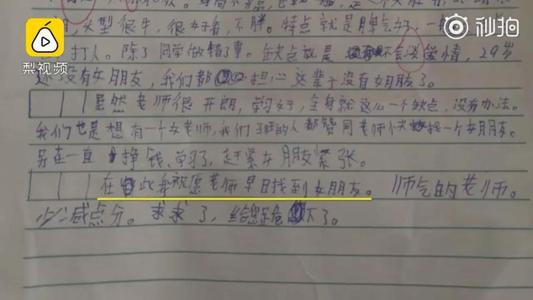 梨视频
秒拍
发型很牛，很好看，不胖。特点就是脾气好，一
打人。除了同学做错事。缺点就是不会谈爱情，29岁
还没有女朋友，我们都担心这辈子没有女朋友了。
虽然老师很开朗，学习好，全身就这么一个缺点，没有办法。
我们也是想有一个女老师，我们班的人都赞同老师快找一个女朋友。
另在一直挣钱、学习，赶紧女朋友紧张。
在此我祝愿老师早日找到女朋友。帅气的老师。
少减点分。求求了，
不了。